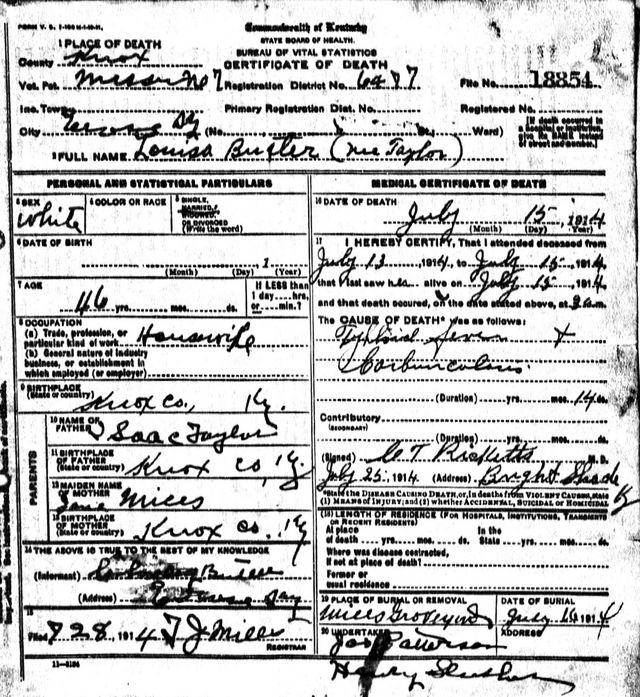 FORM V. S. 1-
Commonwealth of Kentucky
STATE BOARD OF HEALTH.
BUREAU OF VITAL STATISTICS
CERTIFICATE OF DEATH
1 PLACE OF DEATH
County Knox
Vot. Pct. Messer No 7 Registration District No. 6477 File No. 18854
Inc. Town Primary Registration Dist. No. Registered No.
City Ky (No. St., Ward)
[If death occurred in a hospital or institution, give its NAME instead of street and number.]
2 FULL NAME Louisa Butler (nee Taylor)
PERSONAL AND STATISTICAL PARTICULARS
3 SEX 4 COLOR OR RACE 5 SINGLE, MARRIED, WIDOWED, OR DIVORCED (Write the word)
White
6 DATE OF BIRTH
(Month) (Day) 1 (Year)
7 AGE
46 yrs. mos. ds.
If LESS than 1 day....hrs. or....min.?
8 OCCUPATION
(a) Trade, profession, or particular kind of work Housewife
(b) General nature of industry business, or establishment in which employed (or employer)
9 BIRTHPLACE
(State or country) Knox Co., Ky.
PARENTS
10 NAME OF FATHER Isaac Taylor
11 BIRTHPLACE OF FATHER (State or country) Knox Co, Ky
12 MAIDEN NAME OF MOTHER Jane Mills
13 BIRTHPLACE OF MOTHER (State or country) Knox Co. Ky
14 THE ABOVE IS TRUE TO THE BEST OF MY KNOWLEDGE
(Informant) Butler
(Address)
15
Filed 7 28, 1914 T J Mills
REGISTRAR
11-5184
MEDICAL CERTIFICATE OF DEATH
16 DATE OF DEATH
July 15, 1914
(Month) (Day) (Year)
17 I HEREBY CERTIFY, That I attended deceased from
July 13, 1914, to July 15, 1914,
that I last saw h alive on July 15, 1914
and that death occured, on the date stated above, at 3 a.m.
The CAUSE OF DEATH* was as follows:
Typhoid fever +
(Duration) yrs. mos. 14 ds.
Contributory
(SECONDARY)
(Duration) yrs. mos. ds.
(Signed) C T Ricketts M. D.
July 25, 1914 (Address) Bright Shade Ky
*State the DISEASE CAUSING DEATH, or, in deaths from VIOLENT CAUSES, state (1) MEANS OF INJURY; and (2) whether ACCIDENTAL, SUICIDAL or HOMICIDAL
18 LENGTH OF RESIDENCE (FOR HOSPITALS, INSTITUTIONS, TRANSIENTS OR RECENT RESIDENTS)
At place of death yrs. mos. ds. In the State yrs. mos. ds.
Where was disease contracted,
if not at place of death?
Former or
usual residence
19 PLACE OF BURIAL OR REMOVAL DATE OF BURIAL
Mills Graveyard July 16 1914
20 UNDERTAKER ADDRESS
Jas Patterson
Henry